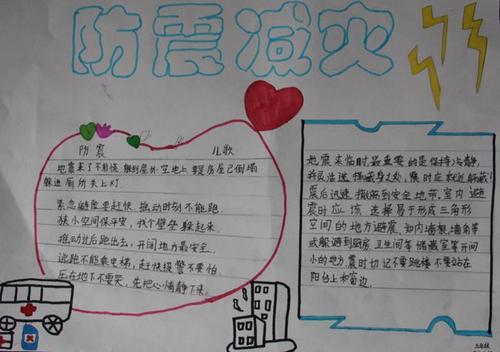 防震减灾
防震 儿歌
地震来了不用慌 躲到屋外空地上 要是房屋已倒塌
躲进厕所关上灯
紧急避险要赶快 摇动时刻不能跑
狭小空间保平安 找个壁垒躲起来
摇动过后跑出去 开阔地方最安全
逃跑不能乘电梯 赶快报警不要怕
压在地下不要哭 先把心情静下来
地震来临时,最重要的是保持冷静,
震后迅速撤离到安全地带,室内避
震时应该选择易于形成三角形
空间的地方避震,如内墙根,墙角等
或躲遇到厨房卫生间等储藏室等开间
小的地方震时切记不要跳楼不要站在
阳台上和窗边。